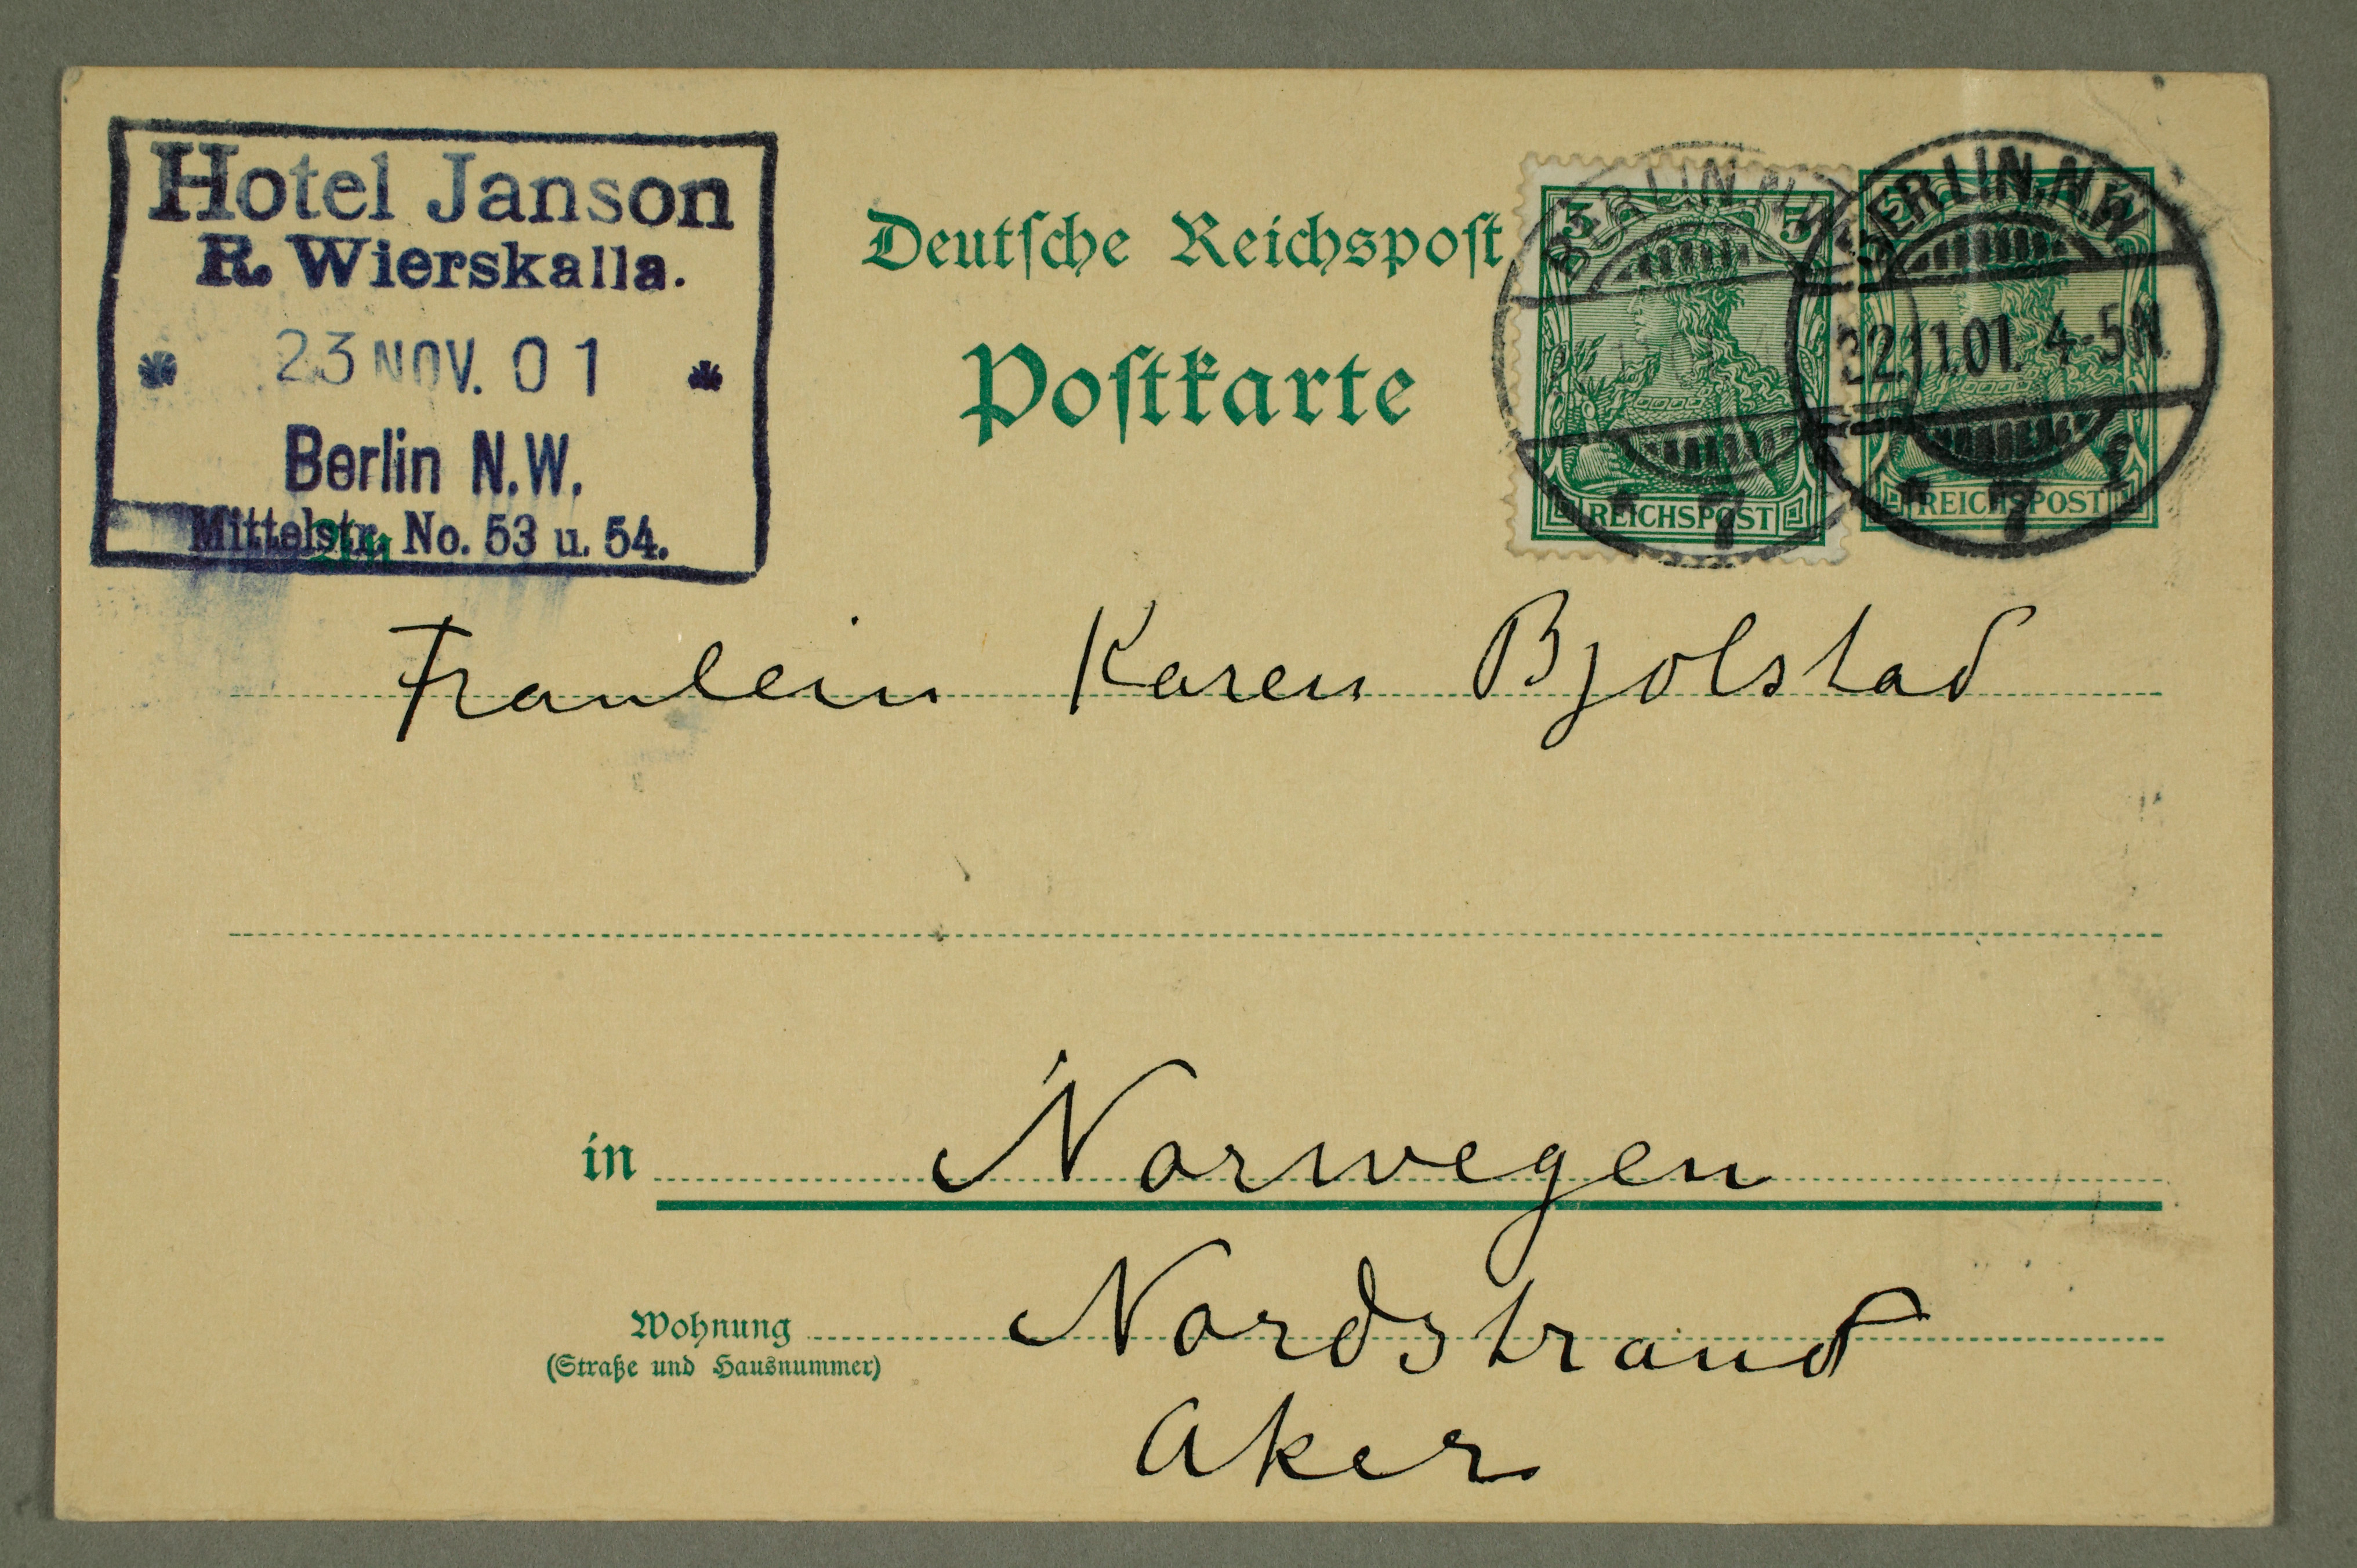 Hotel Janson
R. Wierskalla.
* 23 NOV. 01 *
Berlin N.W.
Mittelstr. No. 53 u. 54.
An
Deutsche Reichspost
Postkarte
5 5
REICHSPOST
BERLIN.N.W.
7
BERLIN.N.W.
22.11.01. 4-5N.
* 7 f
REICHSPOST
Fraulein Karen Bjolstad
in Norwegen
Wohnung Nordstrand
(Straße und Hausnummer)
Aker